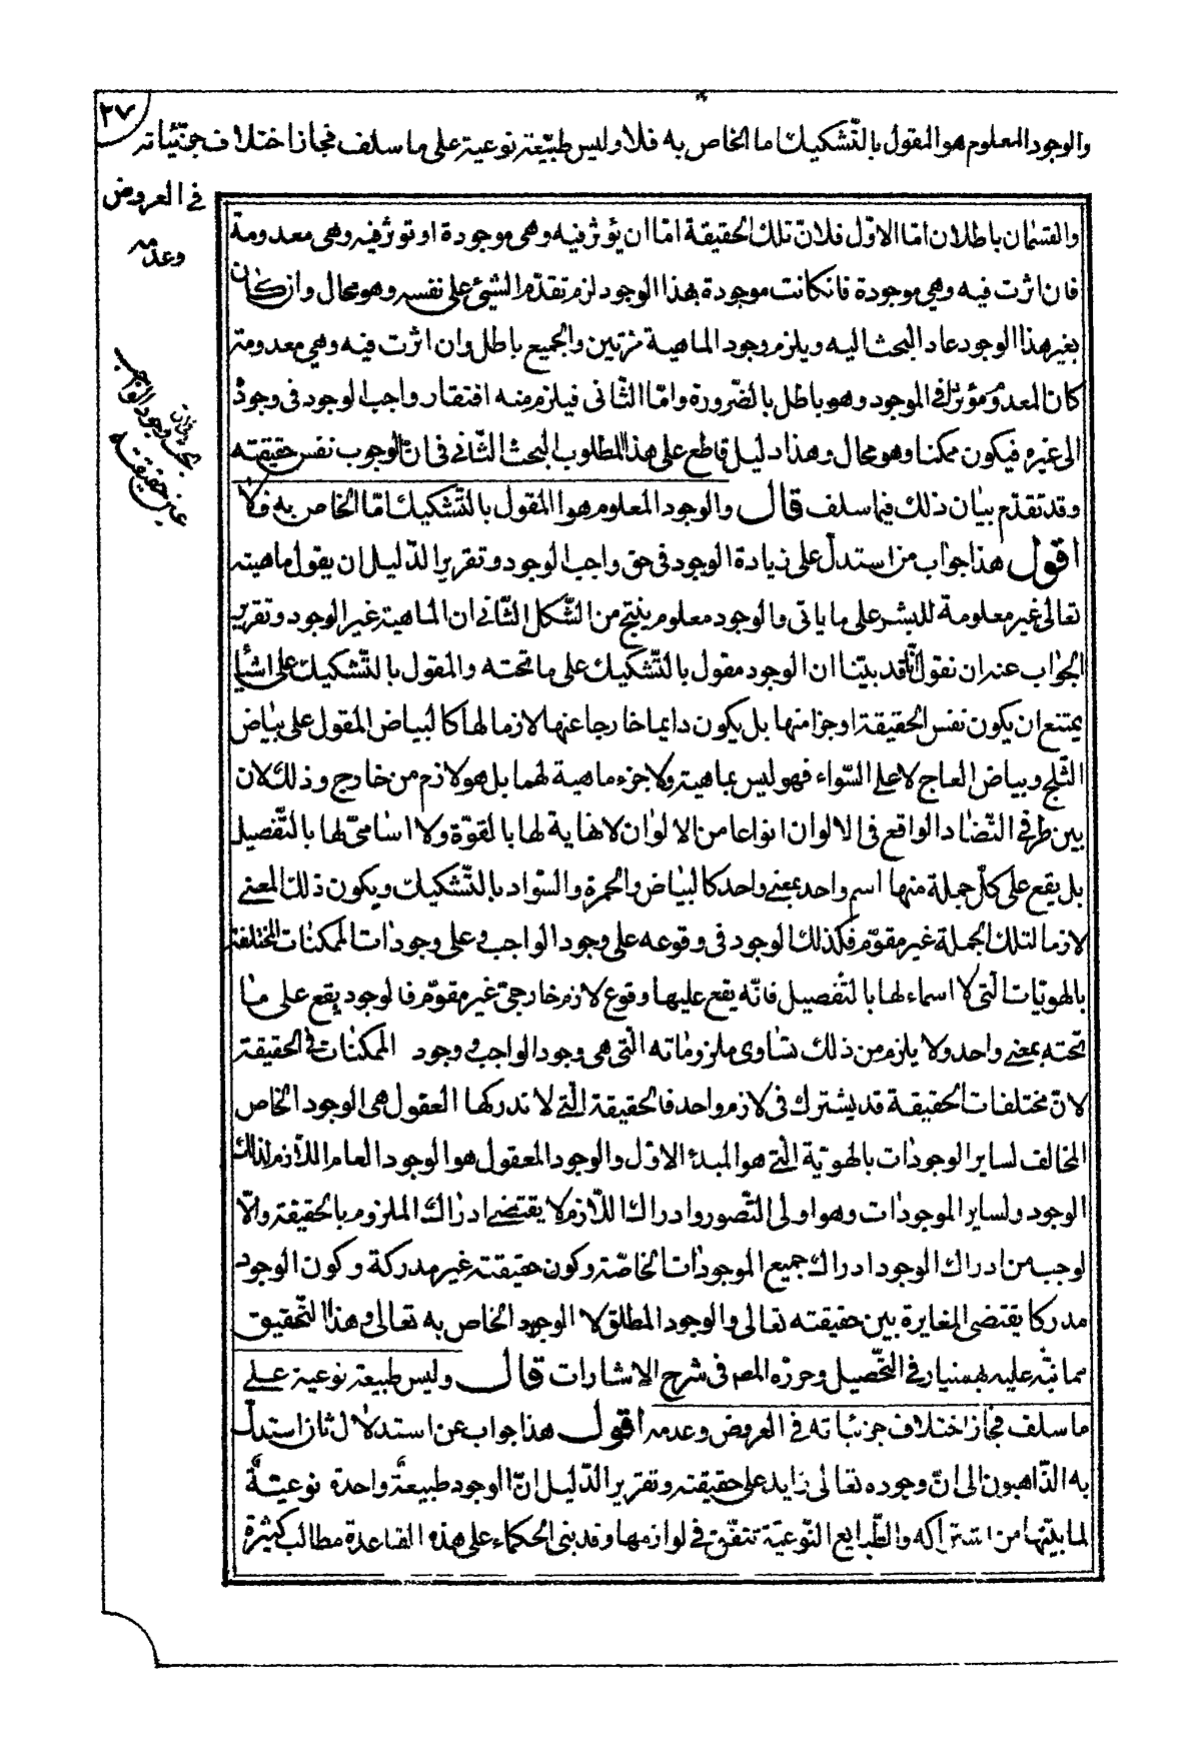 ٢٧
والوجود المعلوم هو المقول بالتّشكيك اما الخاص به فلا وليس طبيعة نوعية على ما سلف فجاز اختلاف جزئياته
فى العروض
وعدمه
والقسمان باطلان امّا الاوّل فلانّ تلك الحقيقة امّا ان يؤثر فيه وهى موجودة او توثر فيه وهى معدومة
فان اثرت فيه وهى موجودة فانكانت موجودة بهذا الوجود لزم تقدّم الشيئ على نفسه وهو محال وان كان
بغير هذا الوجود عاد البحث اليه ويلزم وجود الماهية مرّتين والجميع باطل وان اثرت فيه وهى معدومة
كان المعدوم مؤثرا فى الموجود وهو باطل بالضّرورة وامّا الثّانى فيلزم منه افتقار واجب الوجود فى وجوده
الى غيره فيكون ممكنا وهو محال وهذا دليل قاطع على هذا المطلوب البحث الثّانى فى انّ الوجوب نفس حقيقته
وقد تقدّم بيان ذلك فيما سلف قال والوجود المعلوم هو المقول بالتّشكيك امّا الخاص به فلا
اقول هذا جواب من استدلّ على زيادة الوجود فى حق واجب الوجود وتقرير الدّليل ان يقول ماهيته
تعالى غير معلومة للبشر على ما ياتى والوجود معلوم ينتج من الشّكل الثّانى ان الماهية غير الوجود وتقرير
الجواب عنه ان نقول انّا قد بيّنا ان الوجود مقول بالتّشكيك على ما تحته والمقول بالتّشكيك على اشياء
يمتنع ان يكون نفس الحقيقة او جزا منها بل يكون دايما خارجا عنها لازما لها كالبياض المقول على بياض
الثّلج وبياض العاج لا على السّواء فهو ليس بماهية ولا جزء ماهية لهما بل هو لازم من خارج وذلك لان
بين طرفى التضّاد الواقع فى الالوان انواعا من الالوان لا نهاية لها بالقوّة ولا اسامىّ لها بالتّفصيل
بل يقع على كلّ جملة منها اسم واحد بمعنى واحد كالبياض والحمرة والسّواد بالتّشكيك ويكون ذلك المعنى
لازما لتلك الجملة غير مقوّم فكذلك الوجود فى وقوعه على وجود الواجب وعلى وجودات الممكنات المختلفة
بالهويّات الّتى لا اسماء لها بالتّفصيل فانّه يقع عليها وقوع لازم خارجىّ غير مقوّم فالوجود يقع على ما
تحته بمعنى واحد ولا يلزم من ذلك تساوى ملزوماته الّتى هى وجود الواجب ووجود الممكنات فى الحقيقة
لانّ مختلفات الحقيقة قد يشترك فى لازم واحد فالحقيقة الّتى لا تدركها العقول هى الوجود الخاص
المخالف لساير الوجودات بالهويّة الّتى هو المبدء الاوّل والوجود المعقول هو الوجود العام اللّازم لذلك
الوجود ولساير الموجودات وهو اولى التّصور وادراك اللّازم لا يقتضى ادراك الملزوم بالحقيقة والّا
لوجب من ادراك الوجود ادراك جميع الموجودات الخاصّة وكون حقيقته غير مدركة وكون الوجود
مدركا يقتضى المغايرة بين حقيقته تعالى والوجود المطلق لا الوجود الخاص به تعالى وهذا التّحقيق
مما نبّه عليه بهمنيار فى التّحصيل وحرّره المص فى شرح الاشارات قال وليس طبيعة نوعية على
ما سلف فجاز اختلاف جزئياته فى العروض وعدمه اقول هذا جواب عن استدلال ثان استدلّ
به الذّاهبون الى انّ وجوده تعالى زايد على حقيقته وتقرير الدّليل انّ الوجود طبيعة واحدة نوعيّة
لما بيّنا من اشتراكه والطّبايع النّوعيّة تتفّق فى لوازمها وقد بنى الحكماء على هذه القاعدة مطالب كثيرة
وجود الواجب
عين حقيقته